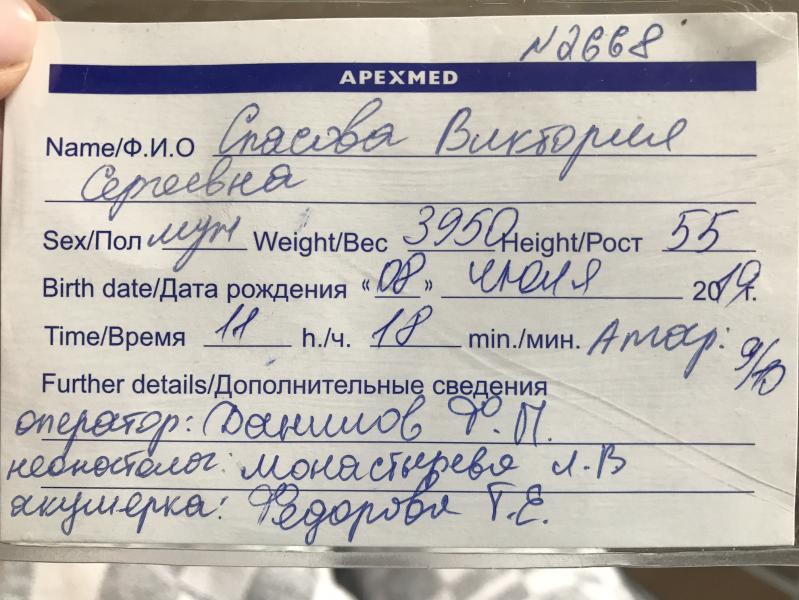 N2668
APEXMED
Name/Ф.И.О Спасова Виктория
Сергеевна
Sex/Пол муж Weight/Вес 3950 Height/Рост 55
Birth date/Дата рождения «08» июля 2019г.
Time/Время 11 h./ч. 18 min./мин. Апгар: 9/10
Further details/Дополнительные сведения
оператор: Данилов Ф.П.
неонатолог: Монастырева Л.В
акушерка: Федорова Т.Е.